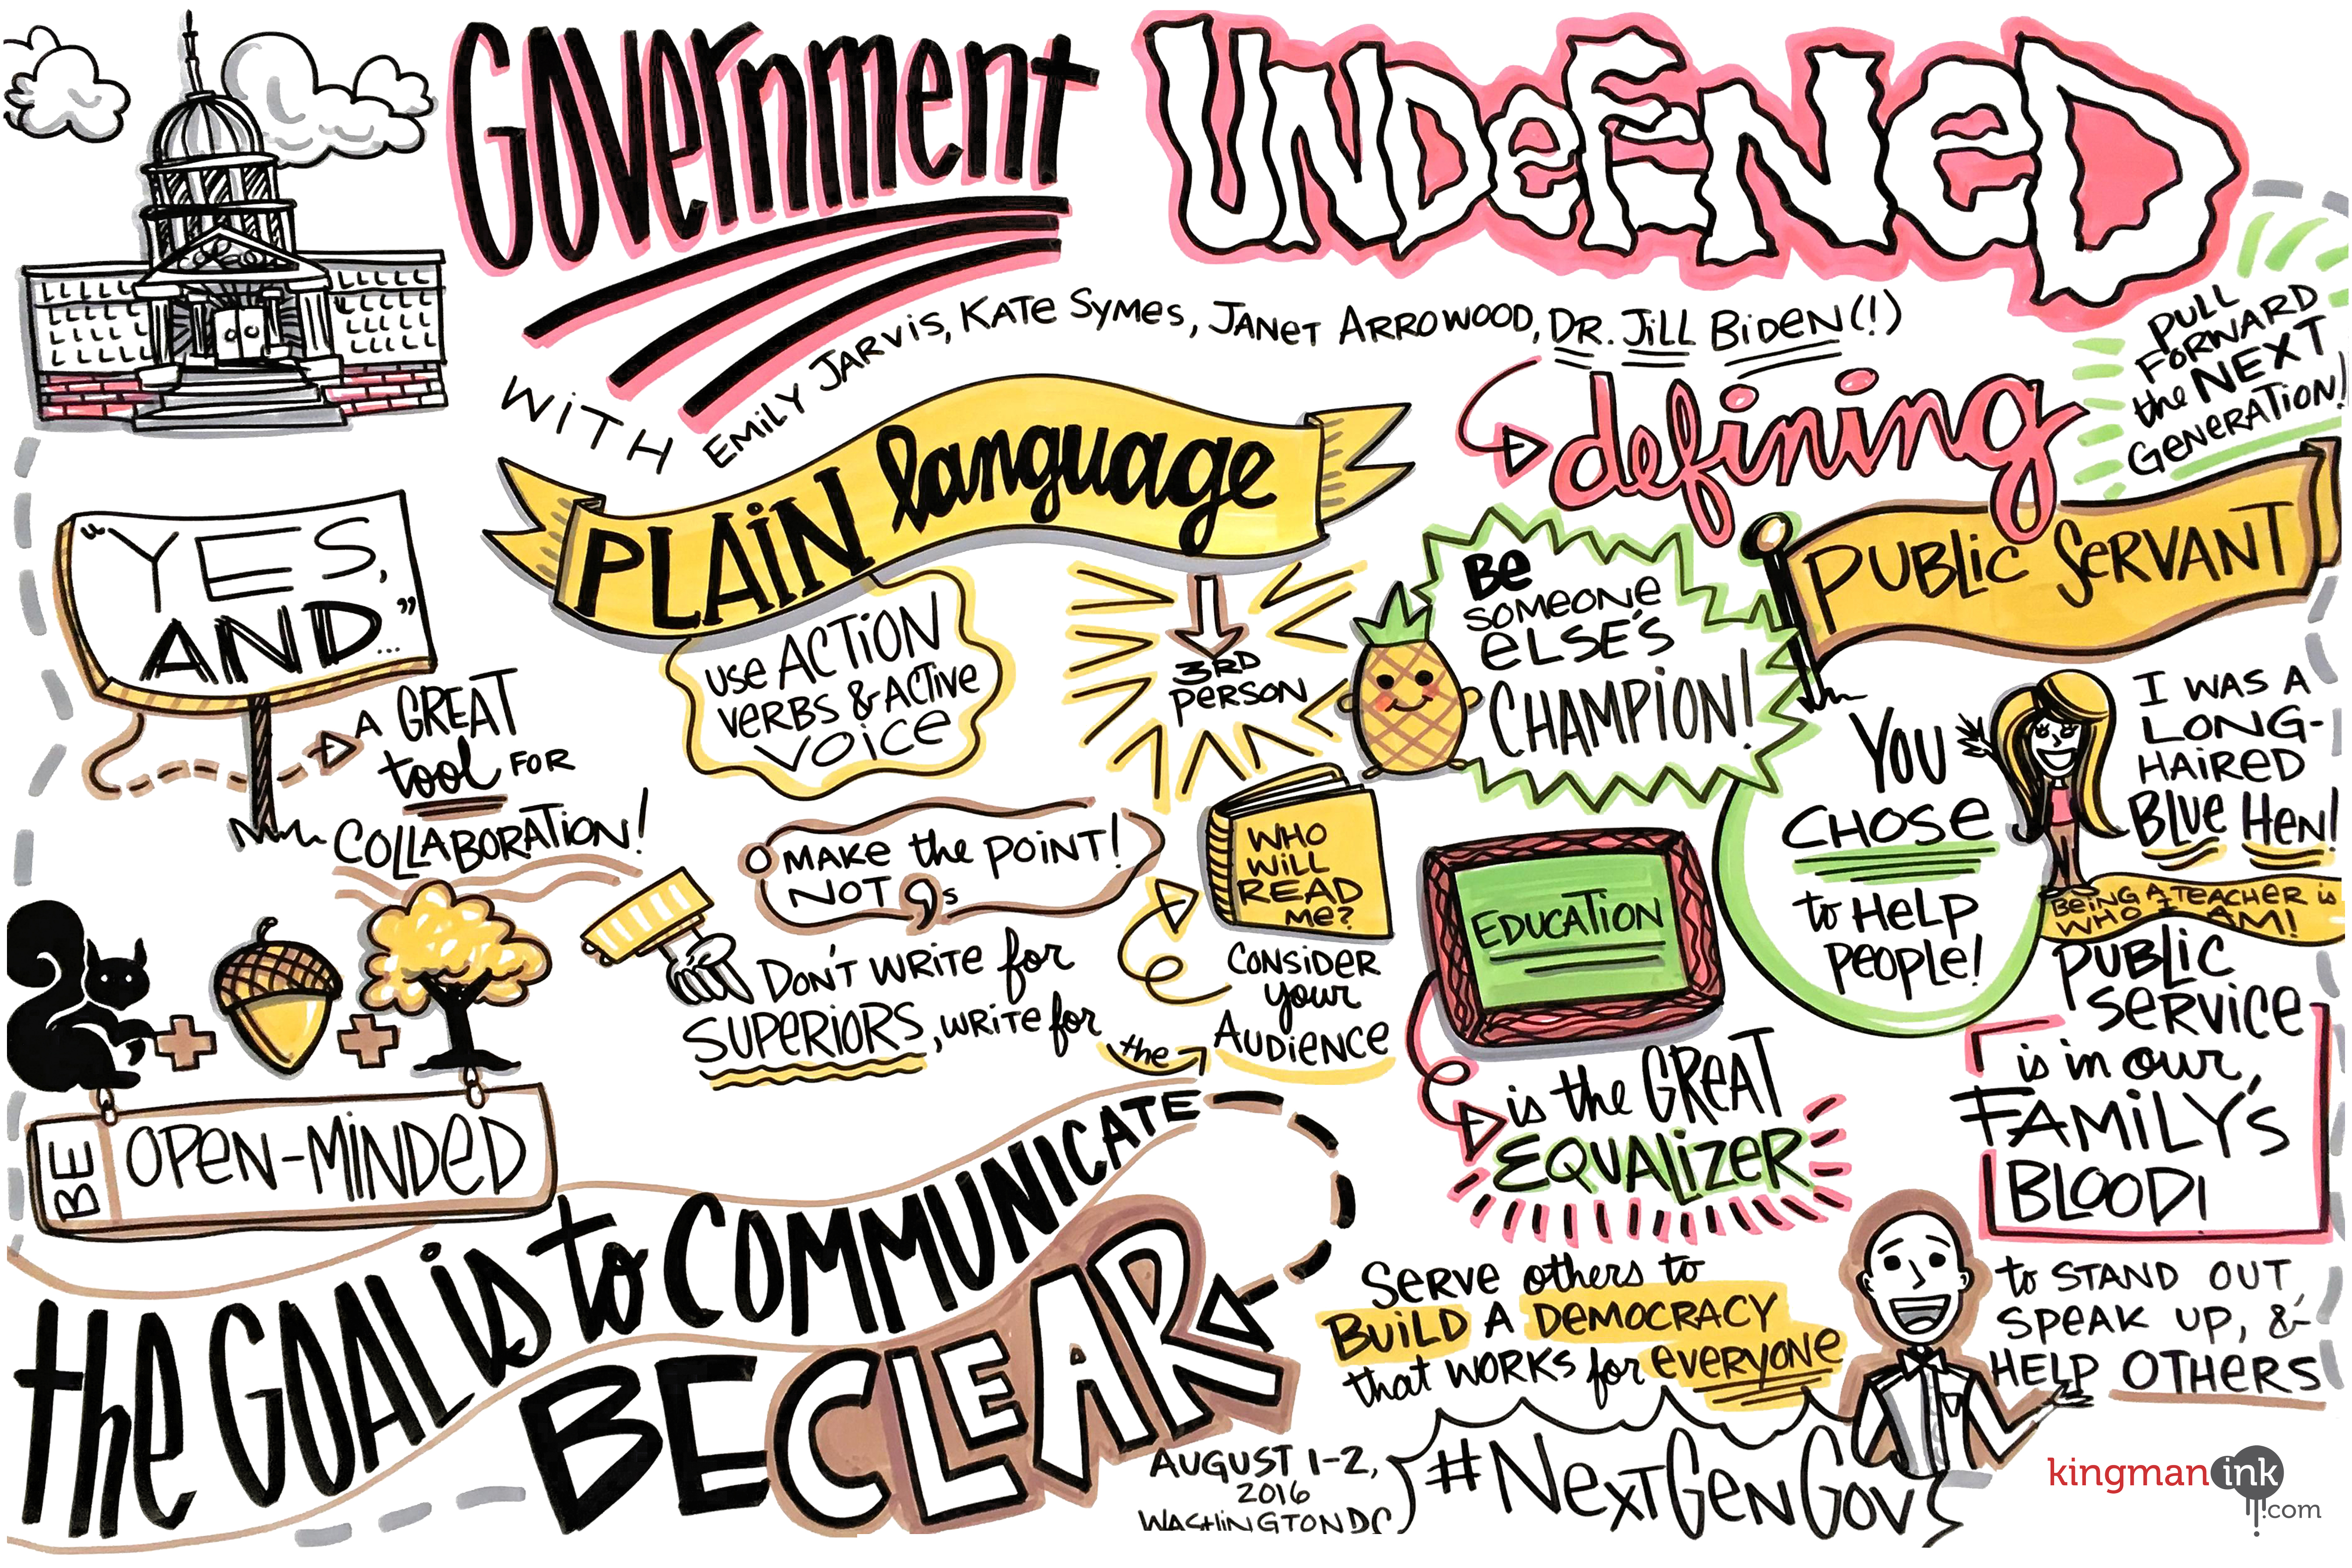 GOVERNMENT UNDEFINED
WITH EMILY JARVIS, KATE SYMES, JANET ARROWOOD, DR. JILL BIDEN(!)
"YES,
AND..."
A GREAT
tool FOR
COLLABORATION!
BE OPEN-MINDED
PLAIN language
USE ACTION
VERBS & ACTIVE
VOICE
3RD
PERSON
MAKE the POINT!
NOT 9s
WHO
WILL
READ
ME?
CONSIDER
your
AUDIENCE
DON'T WRITE for
SUPERIORS, WRITE for
the
the GOAL is to COMMUNICATE
BE CLEAR
defining
PUBLIC SERVANT
PULL
FORWARD
the NEXT
GENERATION!
BE
SOMEONE
ELSE'S
CHAMPION!
YOU
CHOSE
to HELP
PEOPLE!
I WAS A
LONG-
HAIRED
BLUE HEN!
BEING A TEACHER is
WHO I AM!
EDUCATION
is the GREAT
EQUALIZER
PUBLIC
SERVICE
is in our
FAMILY'S
BLOOD!
SERVE others to
BUILD A DEMOCRACY
that WORKS for EVERYONE
to STAND OUT
SPEAK UP, &
HELP OTHERS
AUGUST 1-2,
2016
WASHINGTON DC
#NEXTGENGOV
kingman ink
.com